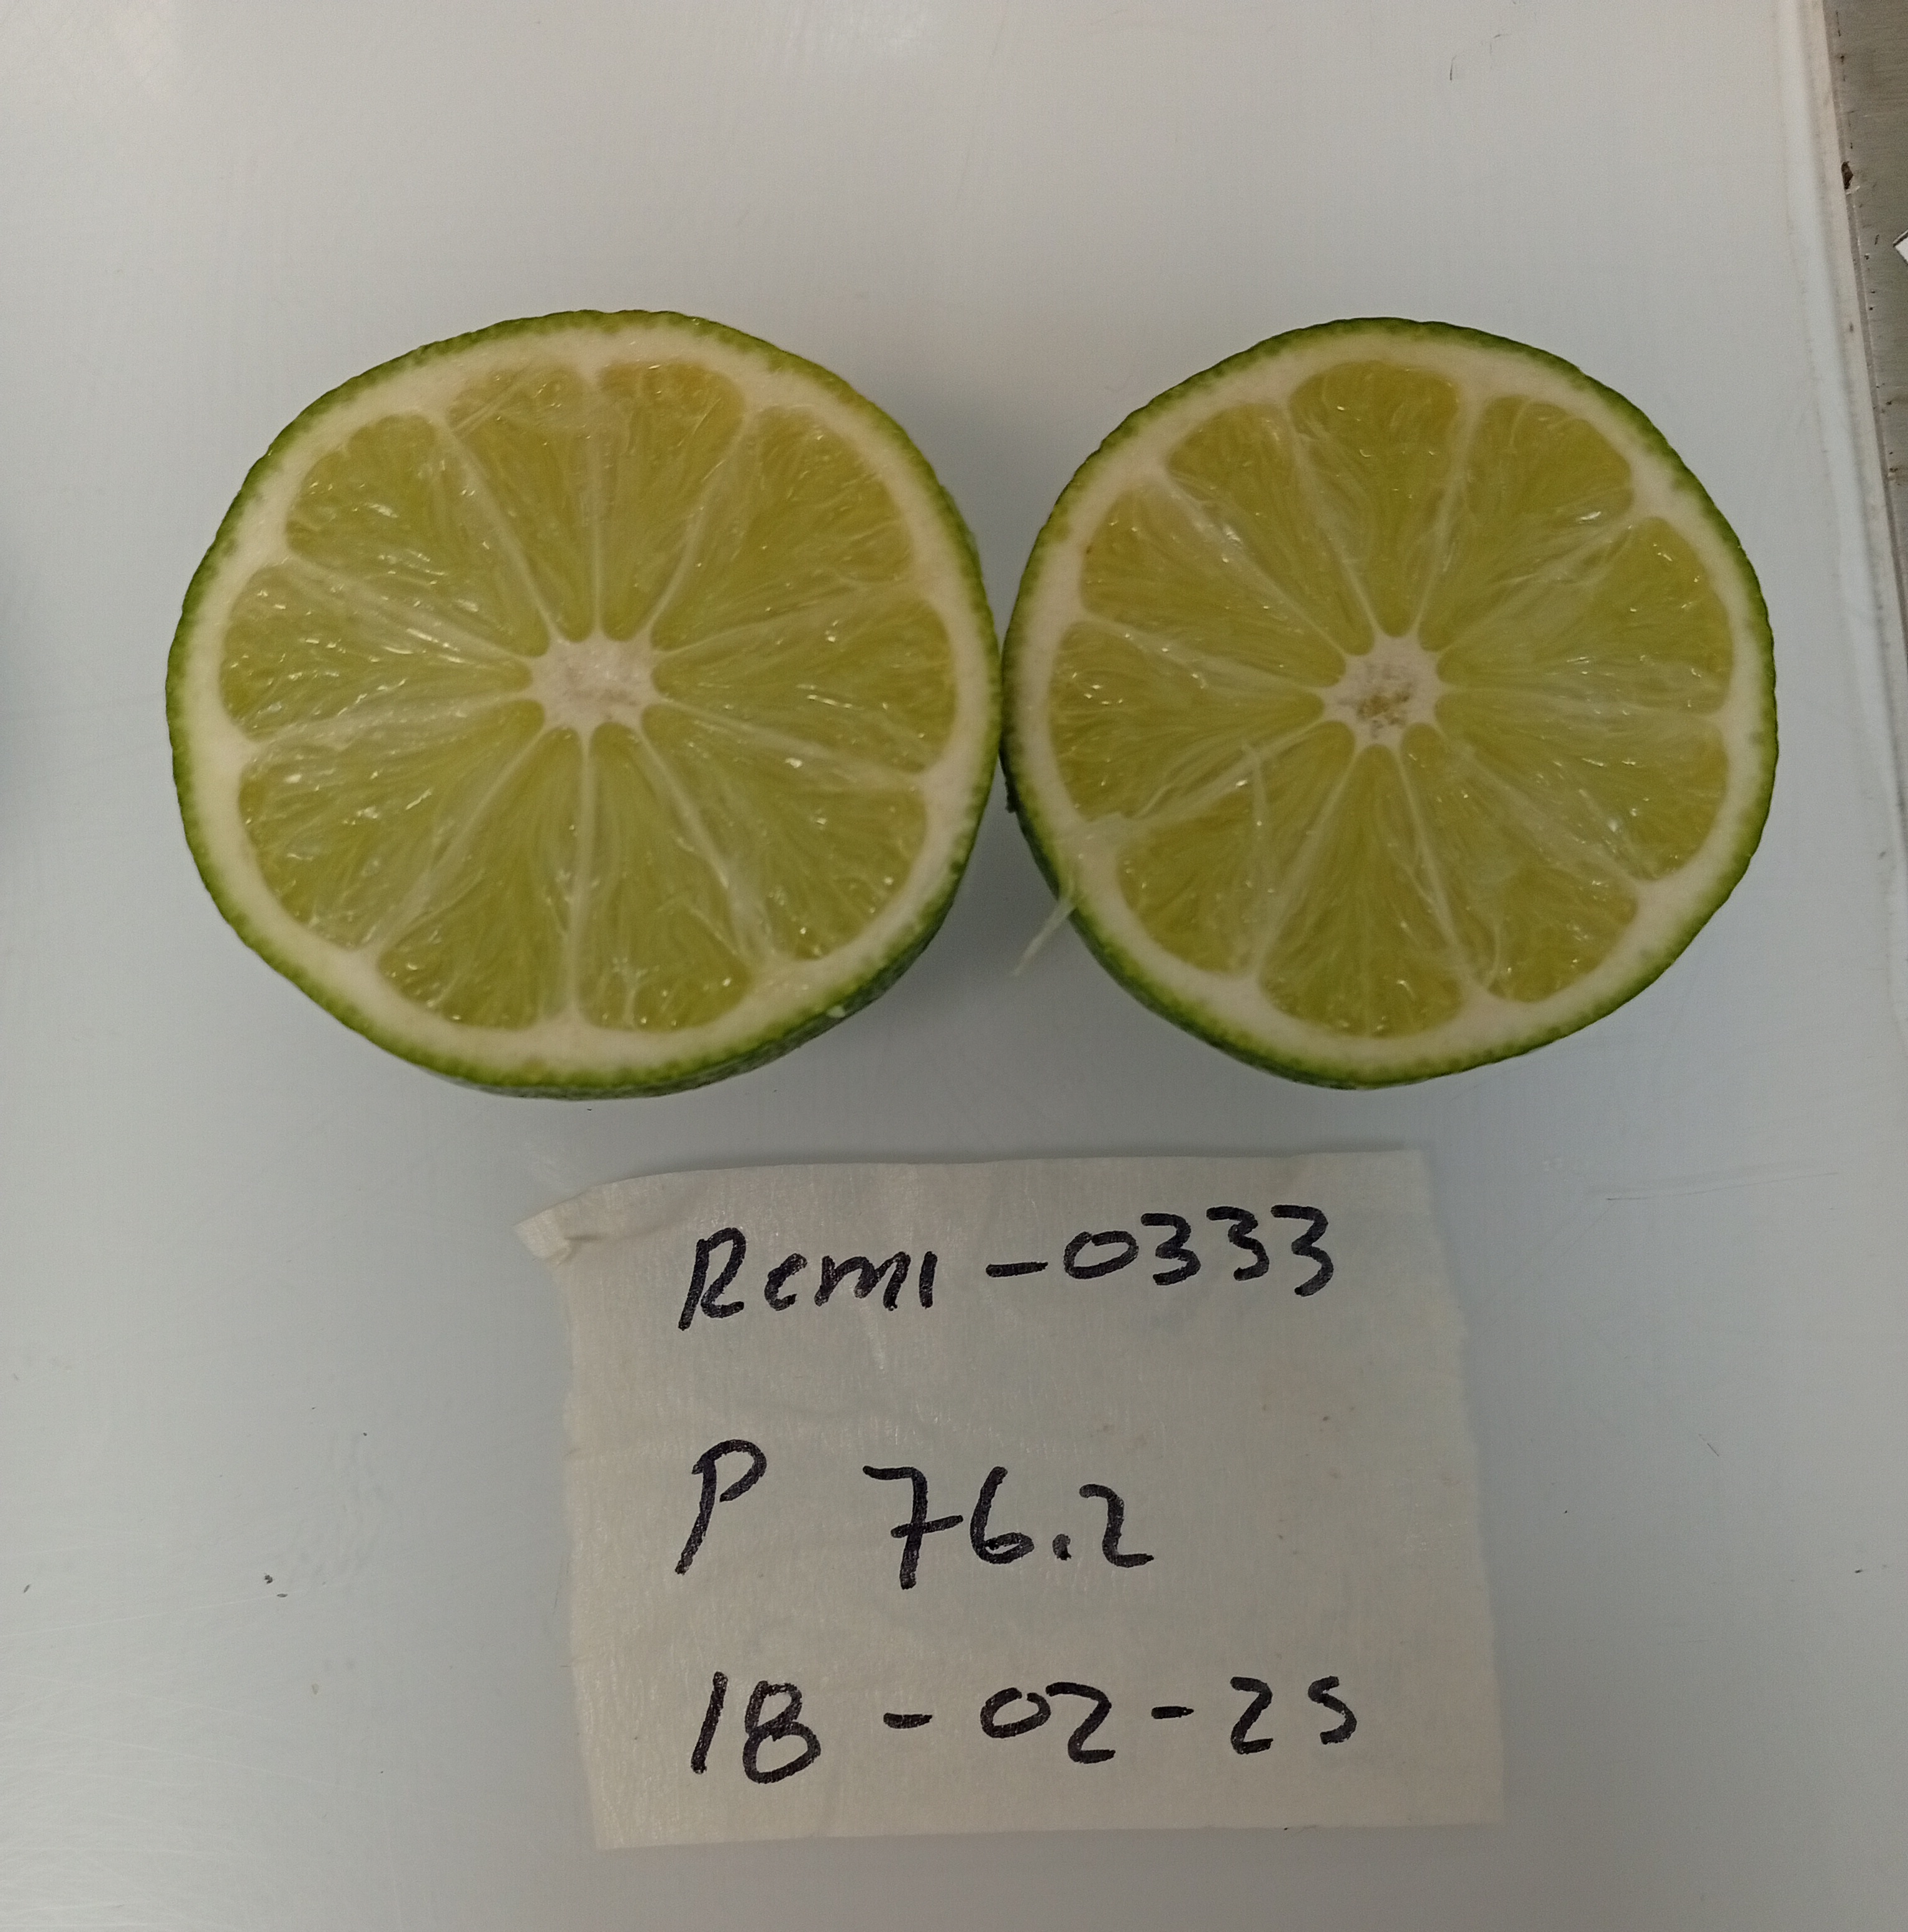 Remi-0333
P 76.2
18-02-25